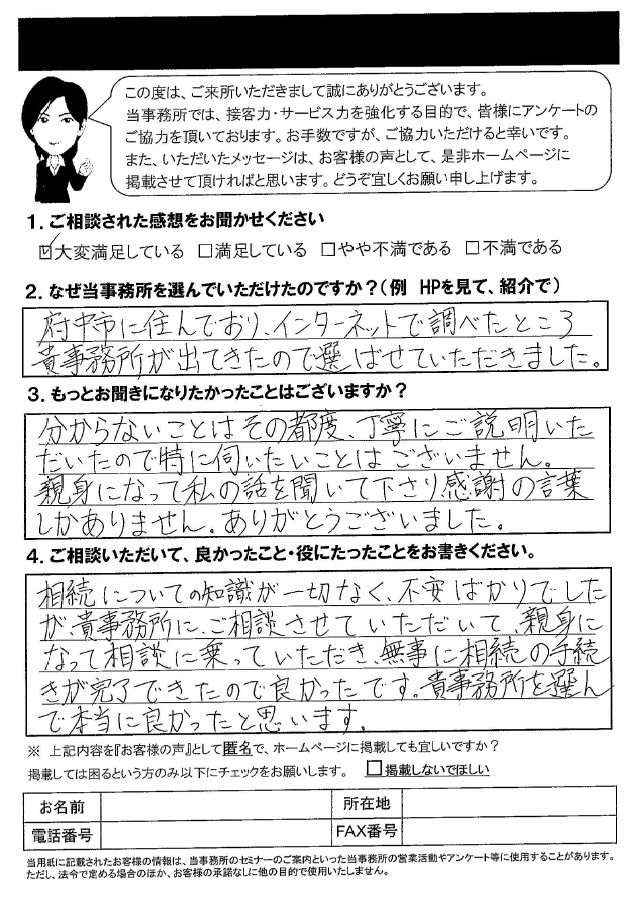 この度は、ご来所いただきまして誠にありがとうございます。
当事務所では、接客力・サービス力を強化する目的で、皆様にアンケートの
ご協力を頂いております。お手数ですが、ご協力いただけると幸いです。
また、いただいたメッセージは、お客様の声として、是非ホームページに
掲載させて頂ければと思います。どうぞ宜しくお願い申し上げます。
1. ご相談された感想をお聞かせください
☑大変満足している □満足している □やや不満である □不満である
2. なぜ当事務所を選んでいただけたのですか?(例 HPを見て、紹介で)
府中市に住んでおり、インターネットで調べたところ
貴事務所が出てきたので選ばせていただきました。
3. もっとお聞きになりたかったことはございますか?
分からないことはその都度、丁寧にご説明いた
だいたので特に伺いたいことはございません。
親身になって私の話を聞いて下さり感謝の言葉
しかありません。ありがとうございました。
4. ご相談いただいて、良かったこと・役にたったことをお書きください。
相続についての知識が一切なく、不安ばかりでした
が、貴事務所に、ご相談させていただいて、親身に
なって相談に乗っていただき、無事に相続の手続
きが完了できたので良かったです。貴事務所を選ん
で本当に良かったと思います。
※ 上記内容を『お客様の声』として匿名で、ホームページに掲載しても宜しいですか?
掲載しては困るという方のみ以下にチェックをお願いします。 □掲載しないでほしい
お名前 所在地
電話番号 FAX番号
当用紙に記載されたお客様の情報は、当事務所のセミナーのご案内といった当事務所の営業活動やアンケート等に使用することがあります。
ただし、法令で定める場合のほか、お客様の承諾なしに他の目的で使用いたしません。